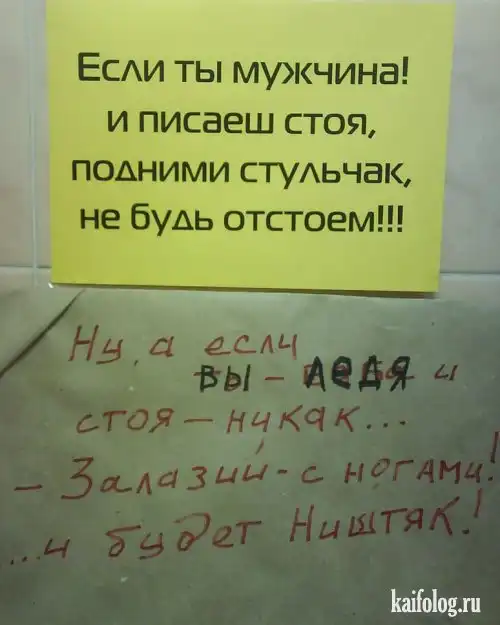 Если ты мужчина!
и писаеш стоя,
подними стульчак,
не будь отстоем!!!
Ну, а если
вы - ледя и
стоя - никак...
- Залазий - с ногами!
...и будет Ништяк!
kaifolog.ru